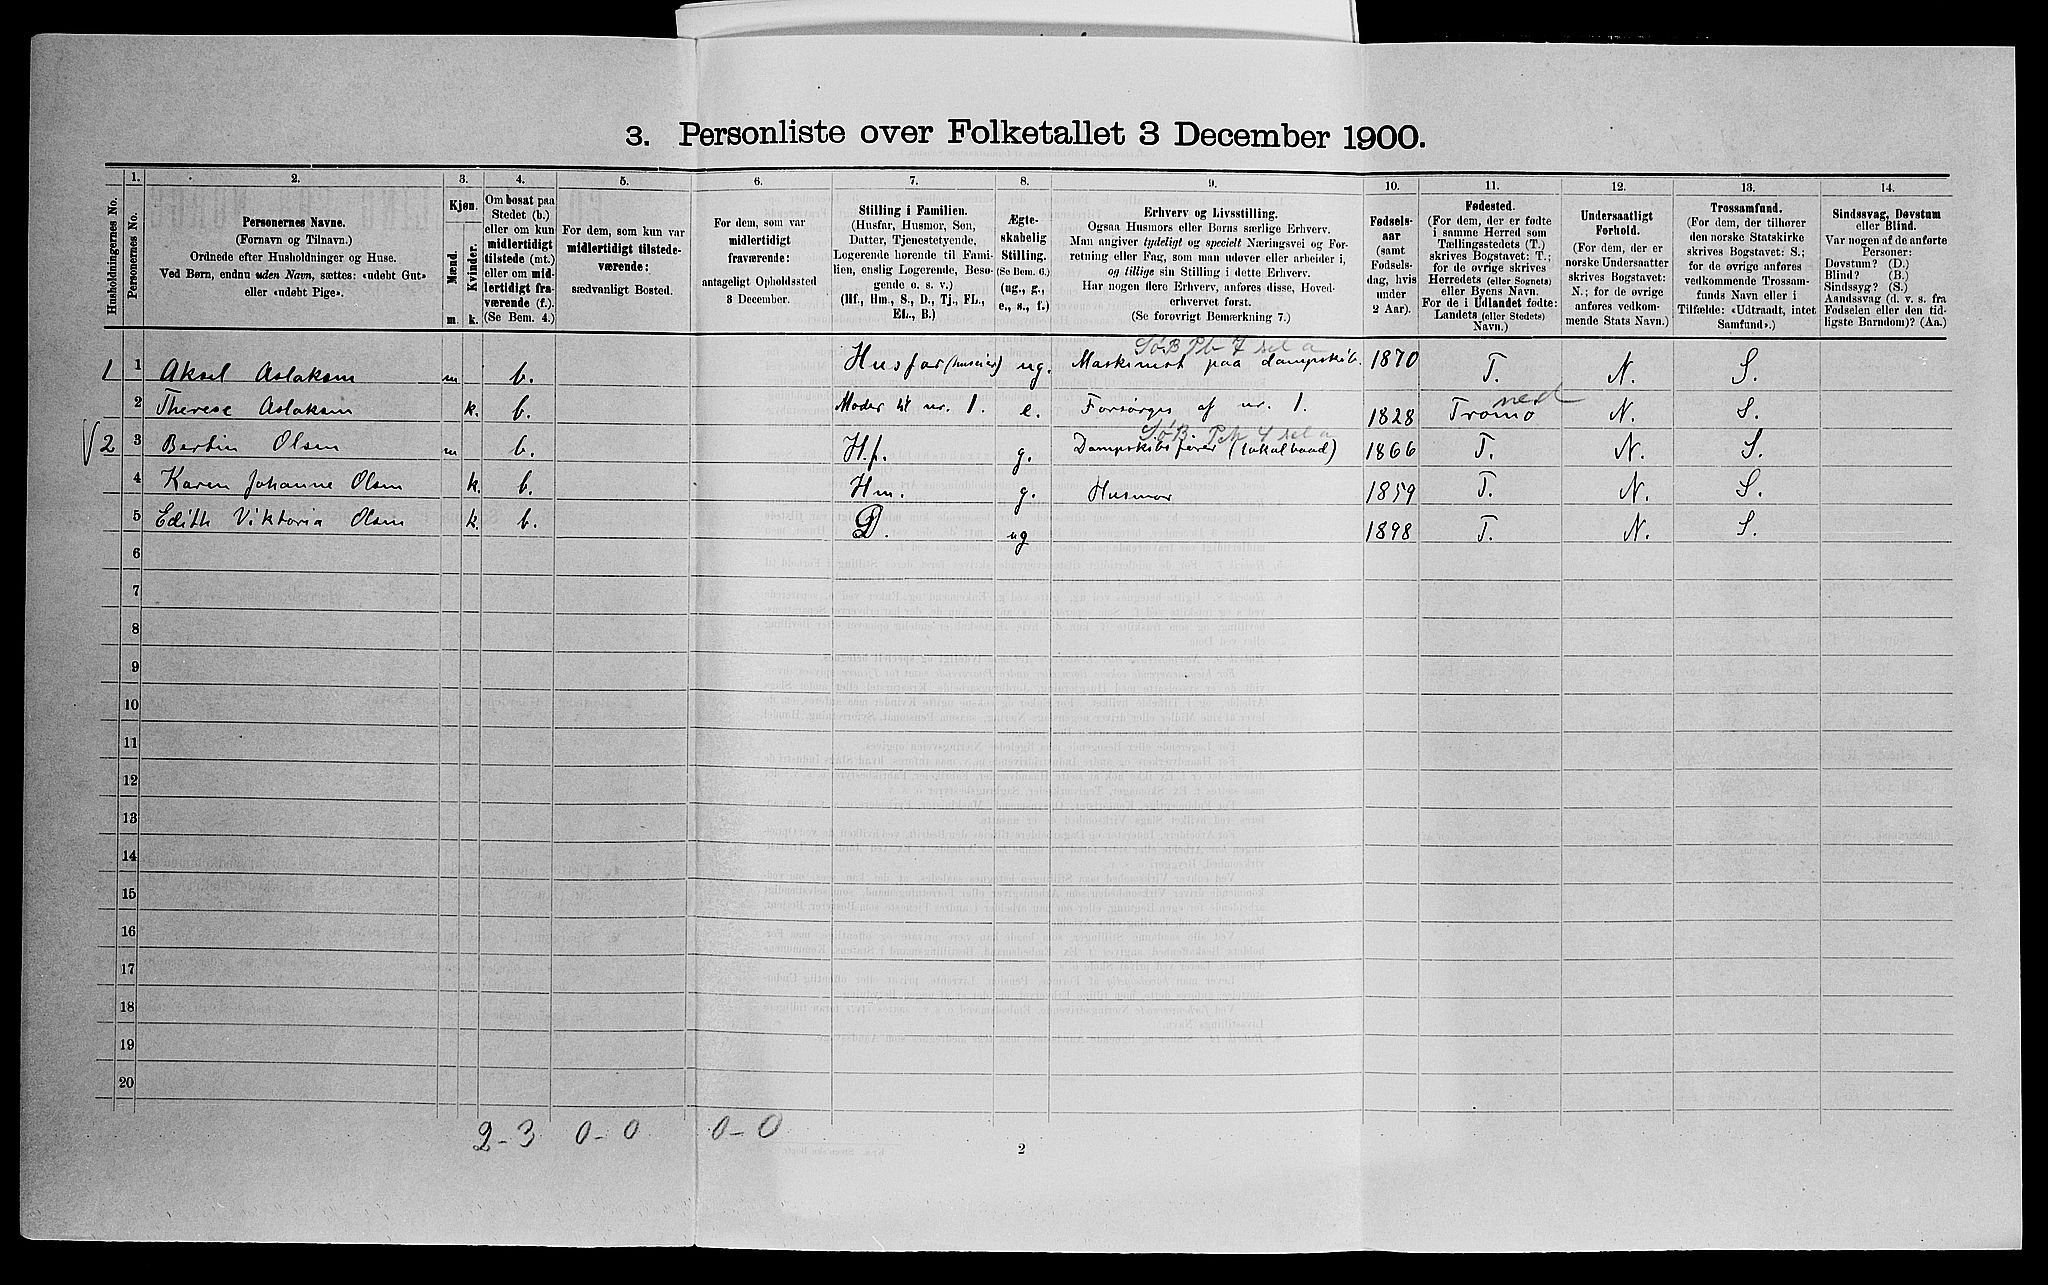 3. Personliste over Folketallet 3 December 1900.
Husholdningernes No.
1.
Personernes No.
2.
Personernes Navne.
(Fornavn og Tilnavn.)
Ordnede efter Husholdninger og Huse.
Ved Børn, endnu uden Navn, sættes: «udøbt Gut»
eller «udøbt Pige».
3.
Kjøn.
Mænd.
Kvinder.
m.
k.
4.
Om bosat paa
Stedet (b.)
eller om kun
midlertidigt
tilstede (mt.)
eller om mid-
lertidigt fra-
værende (f.).
(Se Bem. 4.)
5.
For dem, som kun var
midlertidigt tilstede-
værende:
sædvanligt Bosted.
6.
For dem, som var
midlertidigt
fraværende:
antageligt Opholdssted
3 December.
7.
Stilling i Familien.
(Husfar, Husmor, Søn,
Datter, Tjenestetyende,
Logerende hørende til Fami-
lien, enslig Logerende, Besø-
gende o. s. v.)
(Hf., Hm., S., D., Tj., FL.,
EL., B.)
8.
Ægte-
skabelig
Stilling.
(Se Bem. 6.)
(ug., g.,
e., s., f.)
9.
Erhverv og Livsstilling.
Ogsaa Husmors eller Børns særlige Erhverv.
Man angiver tydeligt og specielt Næringsvei og For-
retning eller Fag, som man udøver eller arbeider i,
og tillige sin Stilling i dette Erhverv.
Har nogen flere Erhverv, anføres disse, Hoved-
erhvervet først.
(Se forøvrigt Bemærkning 7.)
10.
Fødsels-
aar
(samt
Fødsels-
dag, hvis
under
2 Aar).
11.
Fødested.
(For dem, der er fødte
i samme Herred som
Tællingsstedets (T.)
skrives Bogstavet: T.;
for de øvrige skrives
Herredets (eller Sognets)
eller Byens Navn.
For de i Udlandet fødte:
Landets (eller Stedets)
Navn.)
12.
Undersaatligt
Forhold.
(For dem, der er
norske Undersaatter
skrives Bogstavet:
N.; for de øvrige
anføres vedkom-
mende Stats Navn.)
13.
Trossamfund.
(For dem, der tilhører
den norske Statskirke
skrives Bogstavet: S.;
for de øvrige anføres
vedkommende Trossam-
funds Navn eller i
Tilfælde: «Udtraadt, intet
Samfund».)
14.
Sindssvag, Døvstum
eller Blind.
Var nogen af de anførte
Personer:
Døvstum? (D.)
Blind? (B.)
Sindssyg? (S.)
Aandssvag (d. v. s. fra
Fødselen eller den tid-
ligste Barndom)? (Aa.)
1 1 Aksel Aslaksen m b. Husfar (huseier) ug. Maskinist paa dampskib. 1870 T. N. S.
2 Therese Aslaksen k. b. Moder til nr. 1. e. Forsørges af nr. 1. 1828 Tromø N. S.
2 3 Bertin Olsen m b. Hf. g. Dampskibsfører (lokalbaad) 1866 T. N. S.
4 Karen Johanne Olsen k. b. Hm. g. Husmor 1859 T. N. S.
5 Edith Viktoria Olsen k. b. D. ug 1898 T. N. S.
6
7
8
9
10
11
12
13
14
15
16
17
18
19
20
2-3 0-0 0-0
2